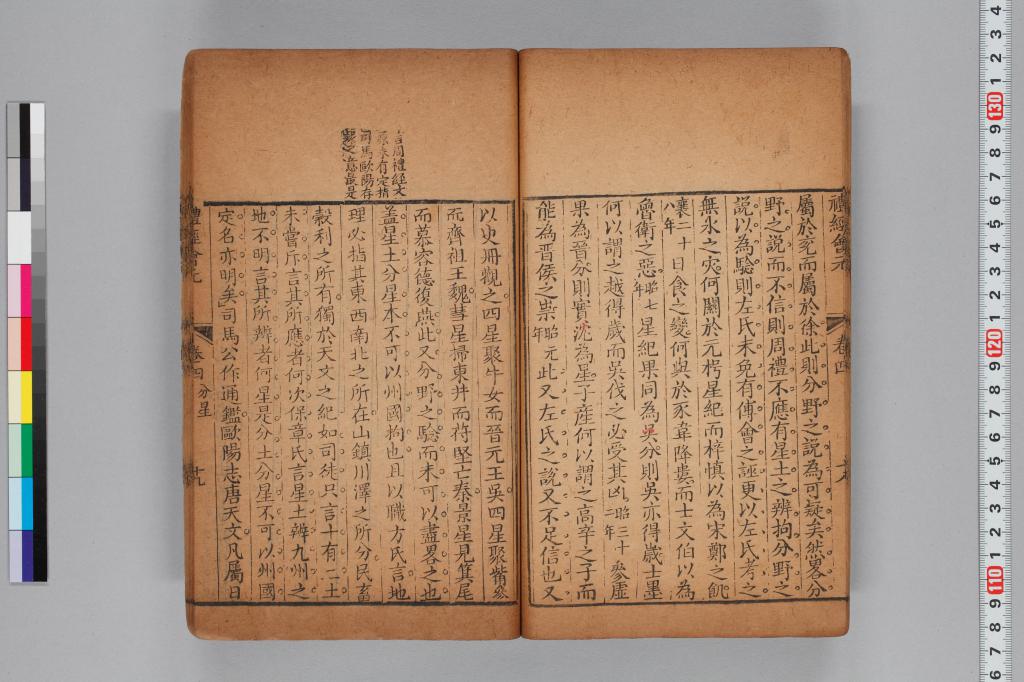 禮經會元 卷四
屬於兗而屬於徐此則分野之說為可疑矣然畧分
野之說而不信則周禮不應有星土之辨拘分野之
說以為驗則左氏未免有傅會之誣更以左氏考之
無氷之灾何關於元枵星紀而梓慎以為宋鄭之飢
襄二十八年日食之變何與於豕韋降婁而士文伯以為
魯衛之惡昭七年星紀果同為吳分則吳亦得歲士墨
何以謂之越得歲而吳伐之必受其凶昭三十二年參虛
果為晉分則實沈為星子產何以謂之高辛之子而
能為晉侯之祟昭元年此又左氏之說又不足信也又
言周禮經文
原未有定指
司馬歐陽存
之意最是
以史冊觀之四星聚牛女而晉元王吳四星聚觜參
而齊祖王魏彗星掃東井而苻堅亡秦景星見箕尾
而慕容德復燕此又分野之驗而未可以盡畧之也
盖星土分星本不可以州國拘也且以職方氏言地
理必指其東西南北之所在山鎮川澤之所分民畜
穀利之所有獨於天文之紀如司徒只言十有二土
未嘗斥言其所應者何次保章氏言星土辨九州之
地不明言其所辨者何星是分土分星不可以州國
定名亦明矣司馬公作通鑑歐陽志唐天文凡屬日
禮經會元 卷四 分星 十九